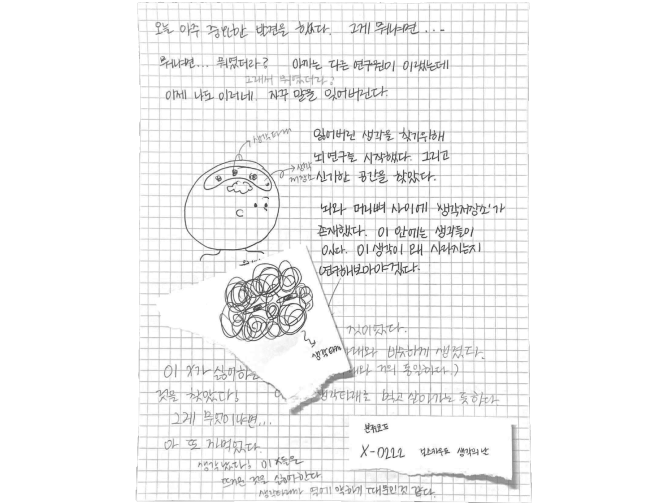 오늘 아주 중요한 발견을 했다. 그게 뭐냐면...
뭐냐면... 뭐였더라? 아까는 다른 연구원이 이랬는데
그래서 뭐였더라?
이제 나도 이러네. 자꾸 말을 잊어버린다.
생각타래
생각
저장소
잃어버린 생각을 찾기위해
뇌 연구를 시작했다. 그리고
신기한 공간을 찾았다.
뇌와 머리뼈 사이에 '생각저장소'가
존재했다. 이 안에는 생각들이
있다. 이 생각이 왜 사라지는지
연구해보아야겠다.
생각타래
것이었다.
비슷하게 생겼다.
거의 동일하다.)
이 X가 싫어하는
것을 찾았다!
생각타래를 먹고 살아가는 듯하다
그게 무엇이냐면...
아 또 까먹었다.
생각났다! 이 X들은
뜨거운 것을 싫어한다
생각타래가 열에 약하기 때문인 것 같다.
분류코드
X-0222
생각의 난